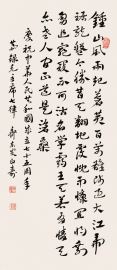 鍾山風雨起蒼黃百萬雄師過大江虎
踞龍盤今勝昔天翻地覆慨而慷宜將剩
勇追窮寇不可沽名學霸王天若有情天
亦老人間正道是滄桑
慶祝中華人民共和國成立五十五周年
錄毛主席七律